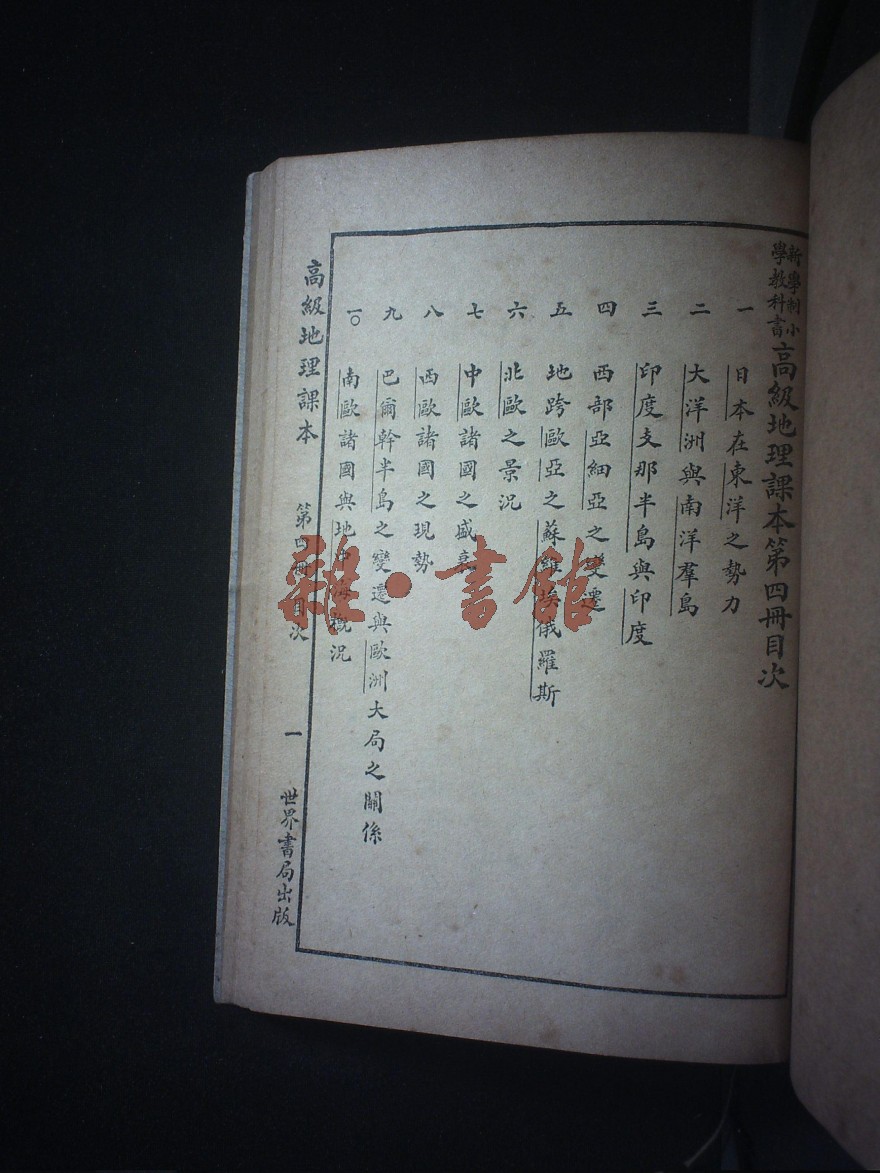 新學制小學教科書 高級地理課本第四冊目次
一 日本在東洋之勢力
二 大洋洲與南洋羣島
三 印度支那半島與印度
四 西部亞細亞之變遷
五 地跨歐亞之蘇維埃俄羅斯
六 北歐之景況
七 中歐諸國之盛衰
八 西歐諸國之現勢
九 巴爾幹半島之變遷與歐洲大局之關係
一〇 南歐諸國與地中海概況
高級地理課本 第四冊 目次 一 世界書局出版
雜·書館